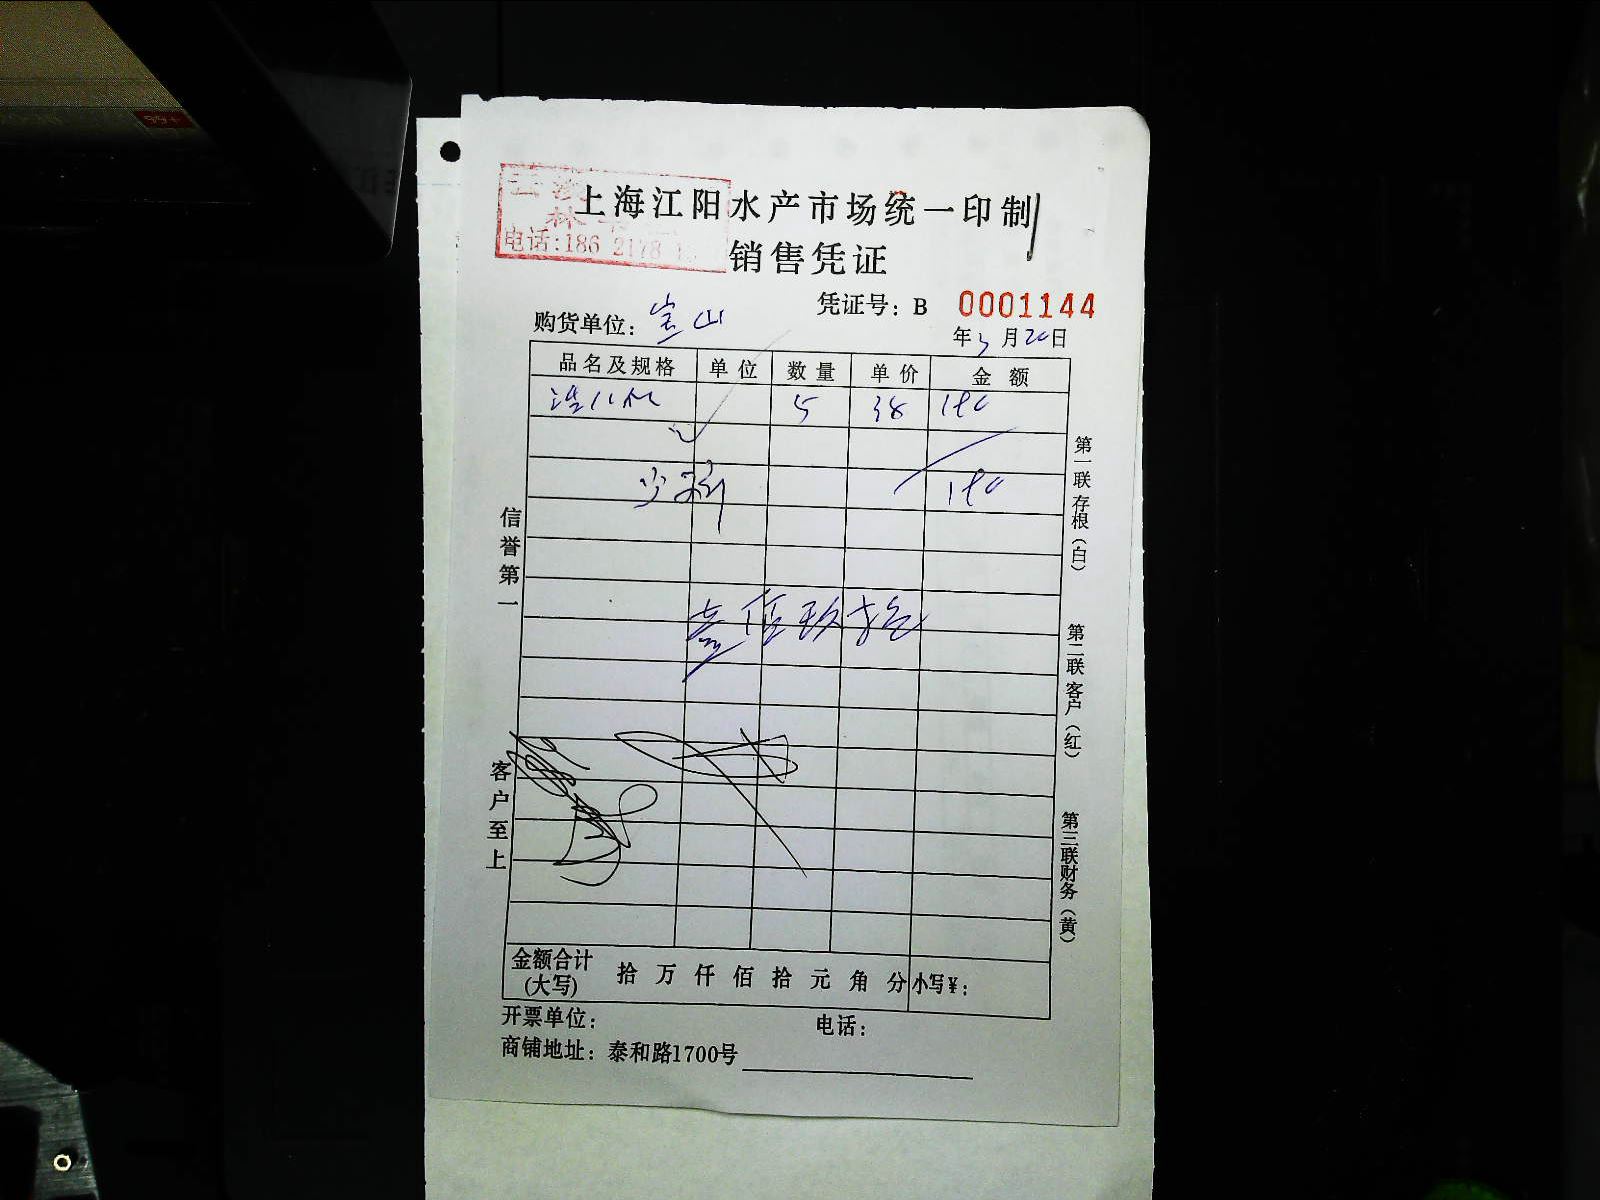 上海江阳水产市场统一印制
电话:186 2178
销售凭证
凭证号: B 0001144
购货单位: 宝山
年 3 月 20 日
品名及规格 单位 数量 单价 金额
5 38 190
190
壹佰玖拾
信誉第一
客户至上
第一联存根(白)
第二联客户(红)
第三联财务(黄)
金额合计(大写) 拾 万 仟 佰 拾 元 角 分 小写¥:
开票单位: 电话:
商铺地址: 泰和路1700号